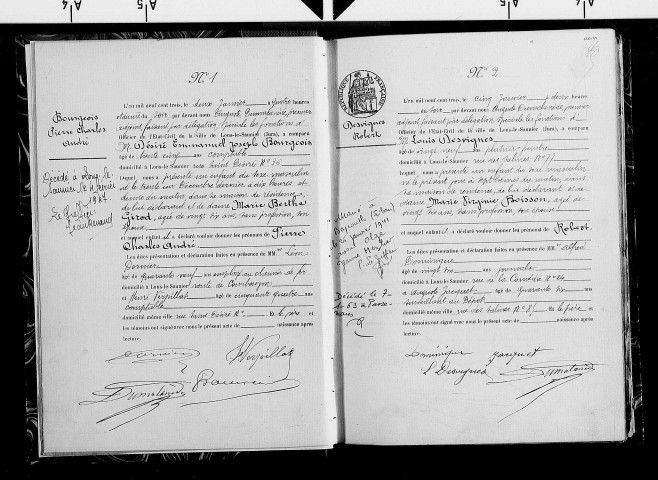 N° 1
Bourgeois
Pierre Charles
André
Décédé à Lons-le-
Saunier le
L'an mil neuf cent trois, le deux Janvier à quatre heures
du soir, par devant nous Auguste
adjoint faisant par délégation spéciale les fonctions d'
Officier de l'Etat-Civil de la ville de Lons-le-Saunier (Jura), a comparu
M. Désiré Emmanuel Joseph Bourgeois
âgé de trente cinq ans comptable
domicilié à Lons-le-Saunier rue Saint Désiré N° 36
lequel nous a présenté un enfant du sexe masculin
né le trente un Décembre dernier à dix heures
du matin, dans sa maison de résidence,
de lui déclarant et de dame Marie Berthe
Girod, âgée de vingt six ans, sans profession, son
épouse
et auquel enfant il a déclaré vouloir donner les prénoms de Pierre
Charles André.
Les dites présentation et déclaration faites en présence de MM. Léon
Dornier
âgé de quarante neuf ans employé au chemin de fer
domicilié à Lons-le-Saunier route de
et Henri Verpillat âgé de cinquante quatre ans
comptable
domicilié même ville rue Saint Désiré N° Et le père et
les témoins ont signé avec nous le présent acte de naissance après
lecture.
Dornier
H Verpillat
Bourgeois
N° 2
REPUBLIQUE FRANCAISE
Desvignes
Robert
Marié à
le
25 janvier 1941
avec Olga
Décédé le 7-
L'an mil neuf cent trois, le cinq Janvier à deux heures
du soir par devant nous Auguste
adjoint faisant par délégation spéciale les fonctions d'
Officier de l'Etat-Civil de la ville de Lons-le-Saunier (Jura), a comparu
M. Louis Desvignes
âgé de vingt neuf ans platrier-peintre
domicilié à Lons-le-Saunier rue des Salines N° 77
lequel nous a présenté un enfant du sexe masculin
né le présent jour à sept heures du matin, dans
sa maison de résidence, de lui déclarant et de
dame Marie Virginie Boisson, âgée de
vingt six ans, sans profession, son épouse
et auquel enfant il a déclaré vouloir donner les prénoms de Robert.
Les dites présentation et déclaration faites en présence de MM. Alfred
Dominique
âgé de vingt six ans journalier
domicilié à Lons-le-Saunier rue de la Comédie N° 24
et Auguste Jacquet âgé de quarante six ans
domicilié même ville rue des Salines N° 87 Et le père et
les témoins ont signé avec nous le présent acte de naissance après
lecture.
Dominique
Jacquet
L Desvignes